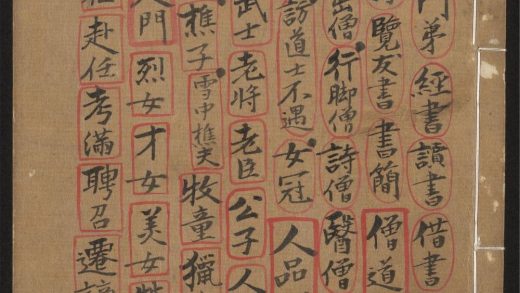 弟 經書 讀書 借書
覽友書 書簡 僧道
僧 行脚僧 詩僧 醫僧
訪道士不遇 女冠 人品
武士 老將 老臣 公子 人
樵子 雪中樵夫 牧童 獵
門 烈女 才女 美女
赴任 考滿 聘召 遷